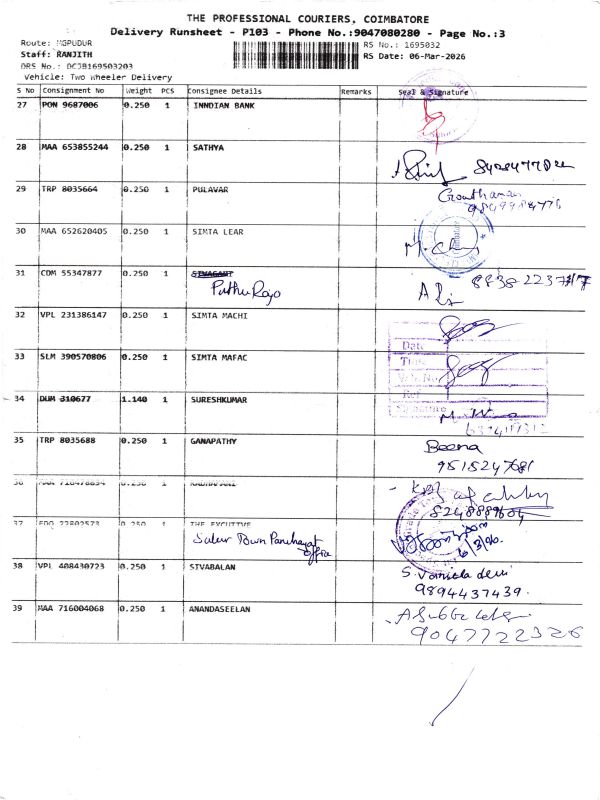 THE PROFESSIONAL COURIERS, COIMBATORE
Delivery Runsheet - P103 - Phone No.:9047080280 - Page No.:3
Route: MGPUDUR
RS No.: 1695032
Staff: RANJITH
RS Date: 06-Mar-2026
DRS No.: DCJB169503203
Vehicle: Two Wheeler Delivery
S No Consignment No Weight PCS Consignee Details Remarks Seal & Signature
27 PON 9687006 0.250 1 INNDIAN BANK
28 MAA 653855244 0.250 1 SATHYA
29 TRP 8035664 0.250 1 PULAVAR
Gouthaman
30 MAA 652620405 0.250 1 SIMTA LEAR
31 COM 55347877 0.250 1
Puthu Raja
32 VPL 231386147 0.250 1 SIMTA MACHI
Date
33 SLM 390570806 0.250 1 SIMTA MAFAC
34 DUM 310677 1.140 1 SURESHKUMAR
Signature
35 TRP 8035688 0.250 1 GANAPATHY
Beena
9515247681
36 0.250 1
37 0.250 1 THE EXCUTIVE
Sulur Town Panchayat
office
38 VPL 408430723 0.250 1 SIVABALAN
S. Vanitha devi
9894437439.
39 MAA 716004068 0.250 1 ANANDASEELAN
9047722326